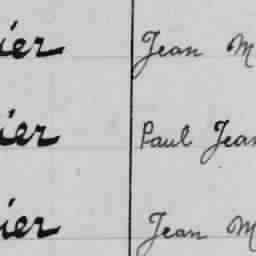 ier Jean M
ier Paul Jean
ier Jean M